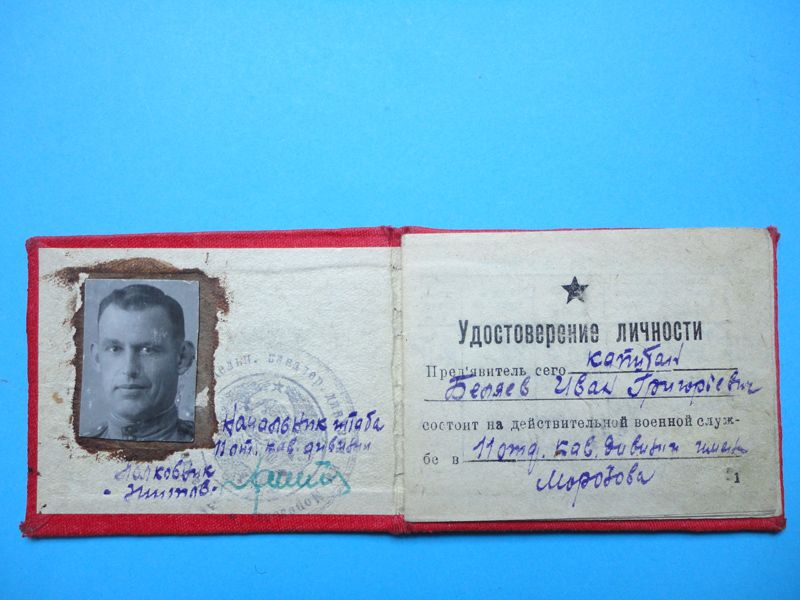 Начальник штаба
11 от. кав. дивизии
Полковник
Удостоверение личности
Пред'явитель сего капитан
Беляев Иван Григориевич
состоит на действительной военной служ-
бе в 11 отд. кав. дивизии имен
Морозова
1